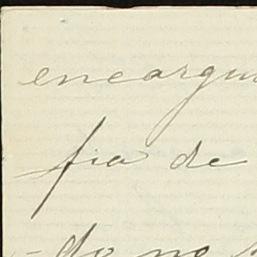 encargu
fia de
-do no